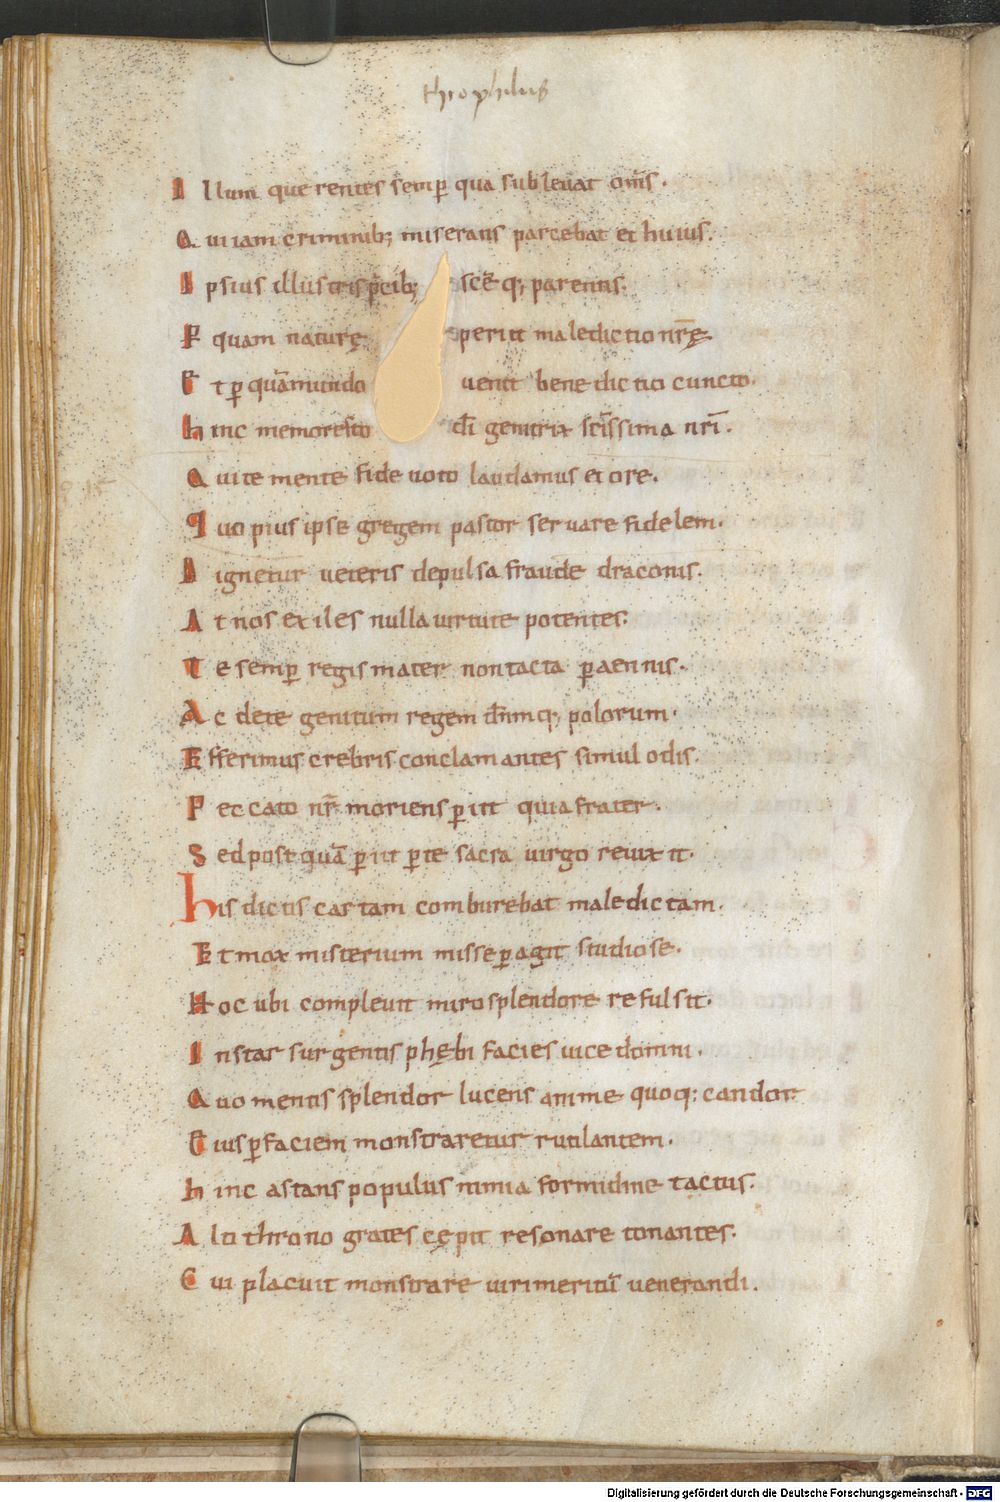 theophilus
I llum querentes semꝑ qua subleuat om̄s.
Q ui iam criminib; miserans parcebat et huius.
I psius illustris p̄cib; scēq; parentis.
P quam naturę periit maledictio nr̄ę
E t ꝑ quā mundo uenit benedictio cuncto.
h inc memor esto dī genitrix sc̄issima nrī.
Q ui te mente fide uoto laudamus et ore.
Q uo pius ipse gregem pastor seruare fidelem.
D ignetur ueteris depulsa fraude draconis.
A t nos exiles nulla uirtute potentes.
T e semꝑ regis mater non tacta ꝑaennis.
A c de te genitum regem dn̄mq; polorum.
E fferimus crebris conclamantes simul odis.
P eccato nr̄ moriens ꝑiit quia frater.
S ed postquā ꝑiit ꝑ te sacra uirgo reuixit.
his dictis cartam comburebat maledictam.
E t mox misterium misse ꝑagit studiose.
H oc ubi compleuit miro splendore refulsit.
I nstar surgentis phębi facies uice domni.
Q uo mentis splendor lucens anime quoq; candor
E ius ꝑ faciem monstraretur rutilantem.
h inc astans populus nimia formidine tactus.
A lti throno grates cępit resonare tonantes.
C ui placuit monstrare uiri meritū uenerandi.
Digitalisierung gefördert durch die Deutsche Forschungsgemeinschaft - DFG